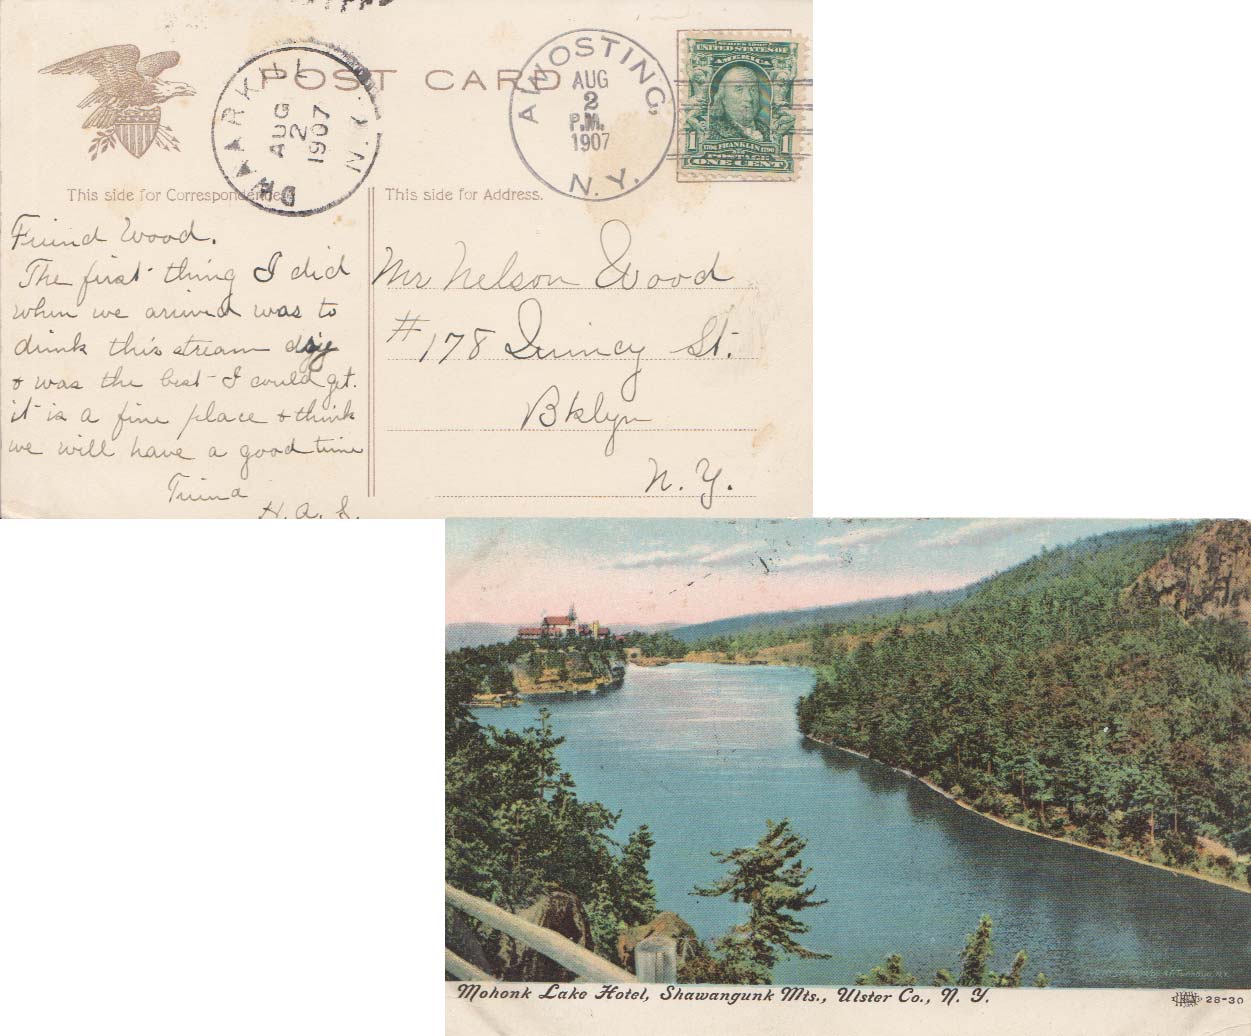 POST CARD
DWAARKILL
N.Y.
AUG
2
1907
AWOSTING,
N.Y.
AUG
2
P.M.
1907
SERIES 1902
UNITED STATES OF
AMERICA
1706 FRANKLIN 1790
POSTAGE
1 ONE CENT 1
This side for Correspondence.
This side for Address.
Friend Wood.
The first thing I did
when we arrived was to
drink this stream dry
& was the best I could get.
it is a fine place & think
we will have a good time
H. A. S.
Mr Nelson Wood
#178 Quincy St.
Bklyn
N. Y.
Mohonk Lake Hotel, Shawangunk Mts., Ulster Co., N. Y.
28-30